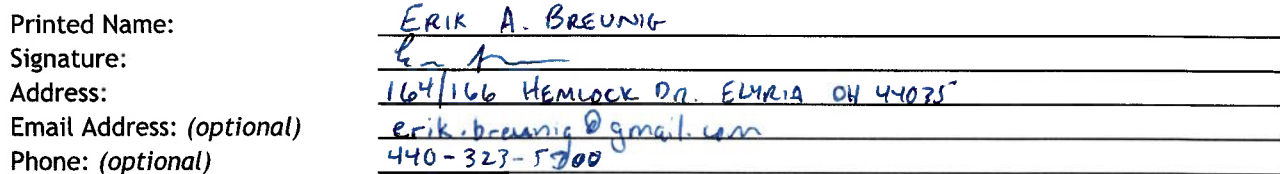 Printed Name: ERIK A. BREUNIG
Signature:
Address: 164/166 HEMLOCK DR. ELYRIA OH 44035
Email Address: (optional) erik.breunig@gmail.com
Phone: (optional) 440-323-